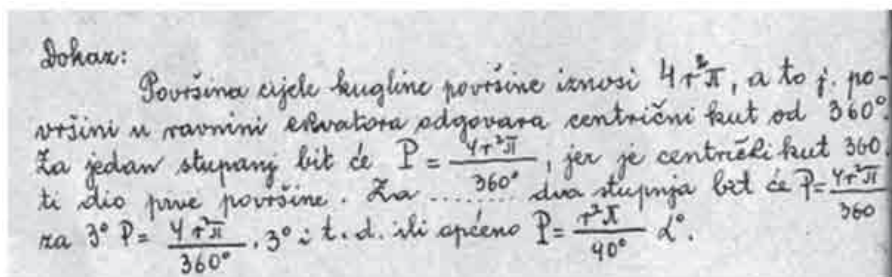 Dokaz:
Površina cijele kugline površine iznosi 4r²π, a to j. po-
vršini u ravnini ekvatora odgovara centrični kut od 360°
Za jedan stupanj bit će P = 4r²π/360°, jer je centrički kut 360.
ti dio prve površine. Za ........ dva stupnja bit će P = 4r²π/360
za 3° P = 4r²π/360° . 3° i t. d. ili općeno P = r²π/40° α°.